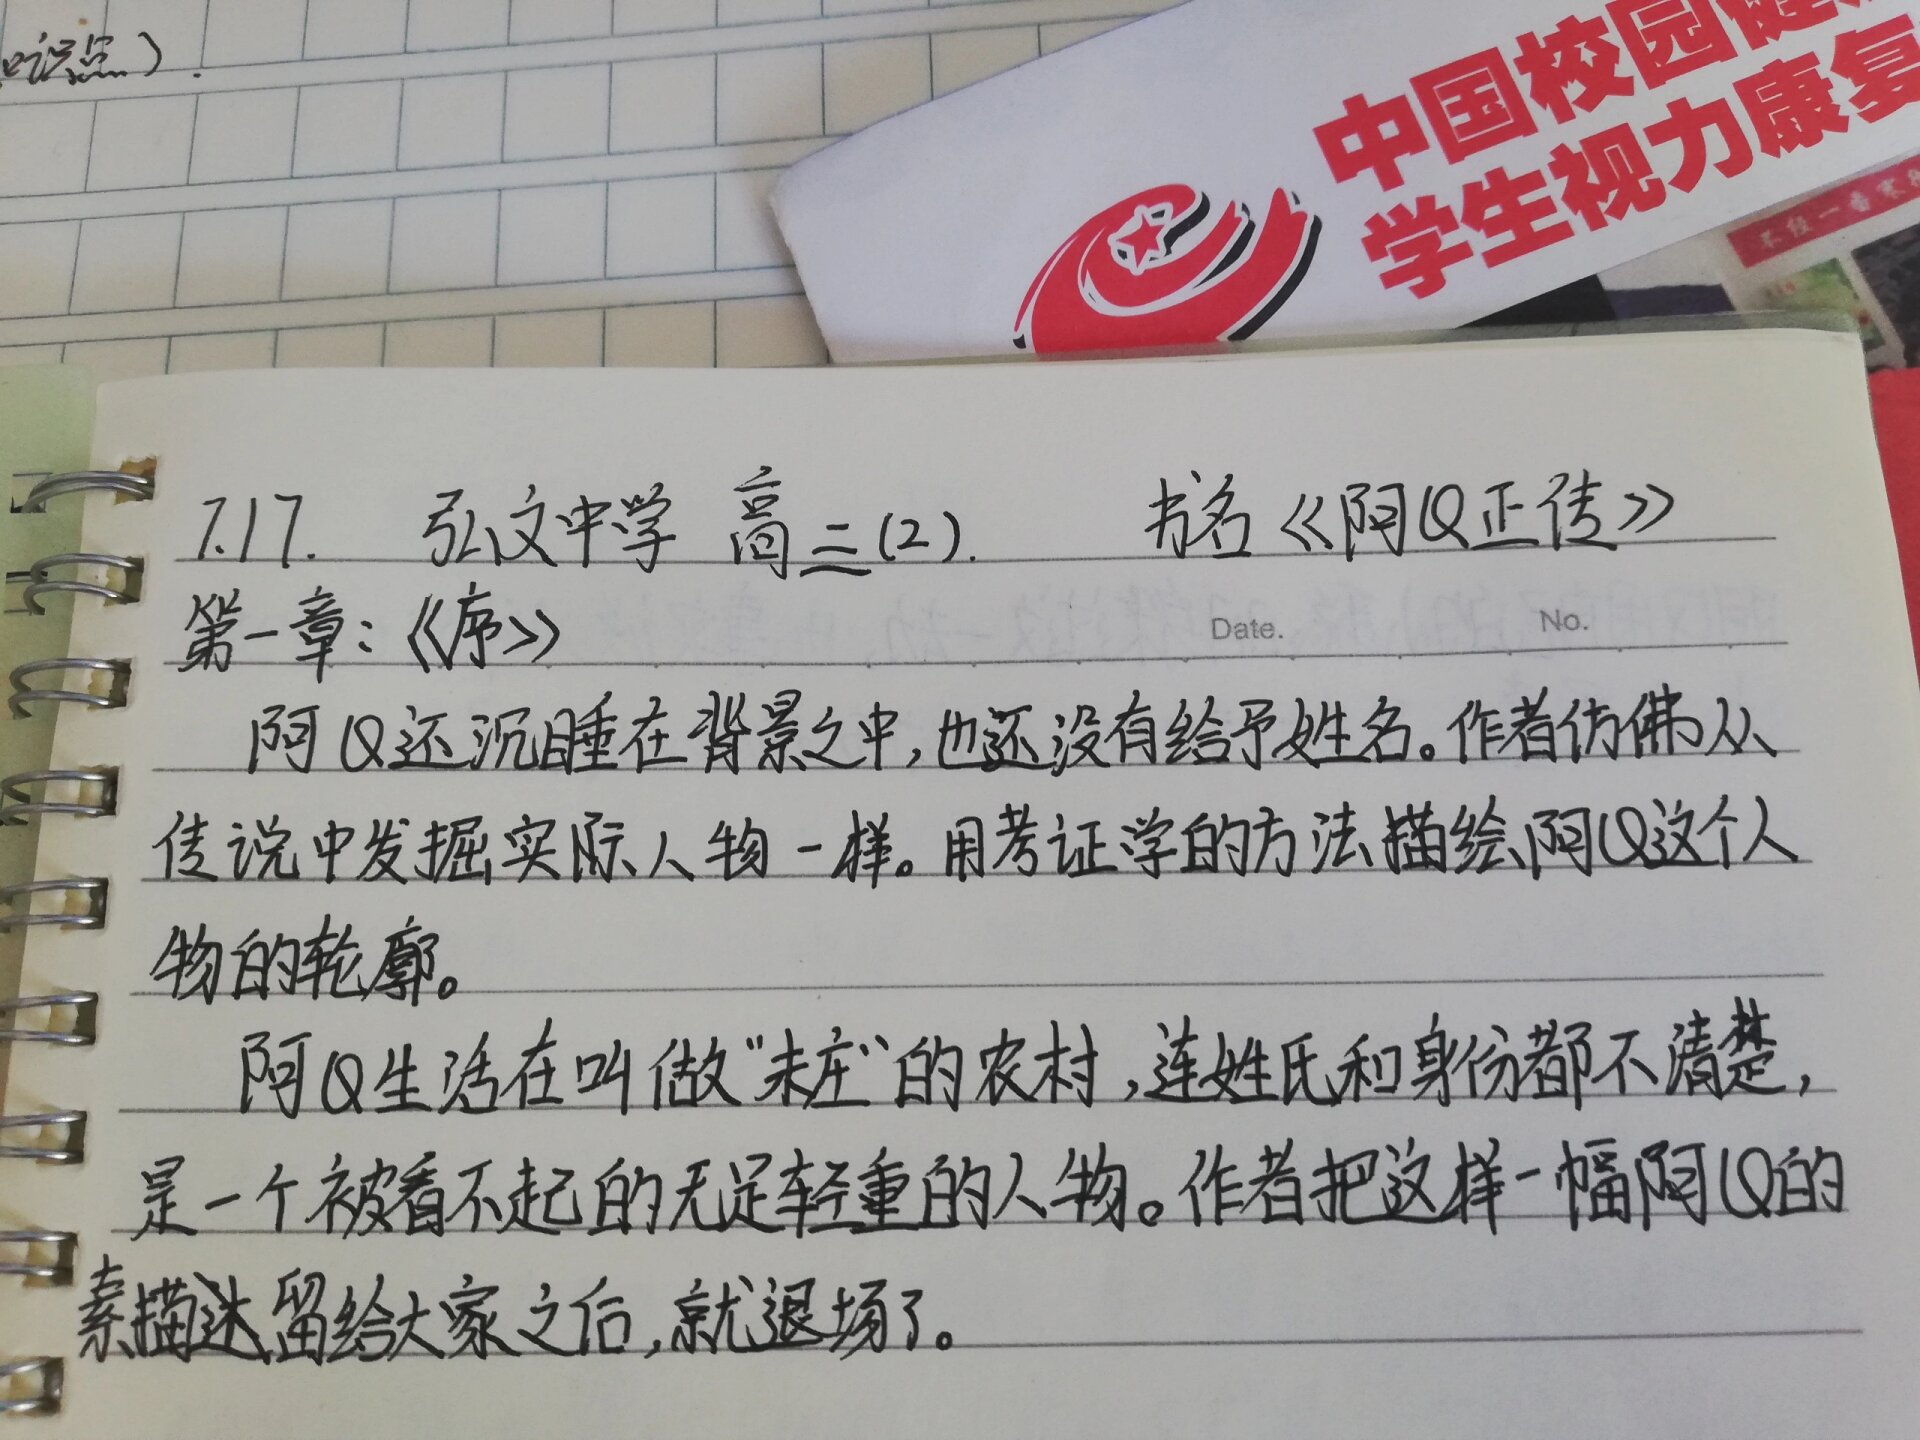 识点）.
中国校园健
学生视力康复
不经一番寒
7.17. 弘文中学 高三(2). 书名《阿Q正传》
第一章：《序》
Date. No.
阿Q还沉睡在背景之中,也还没有给予姓名。作者仿佛从
传说中发掘实际人物一样。用考证学的方法描绘阿Q这个人
物的轮廓。
阿Q生活在叫做"未庄"的农村,连姓氏和身份都不清楚,
是一个被看不起的无足轻重的人物。作者把这样一幅阿Q的
素描送留给大家之后,就退场了。